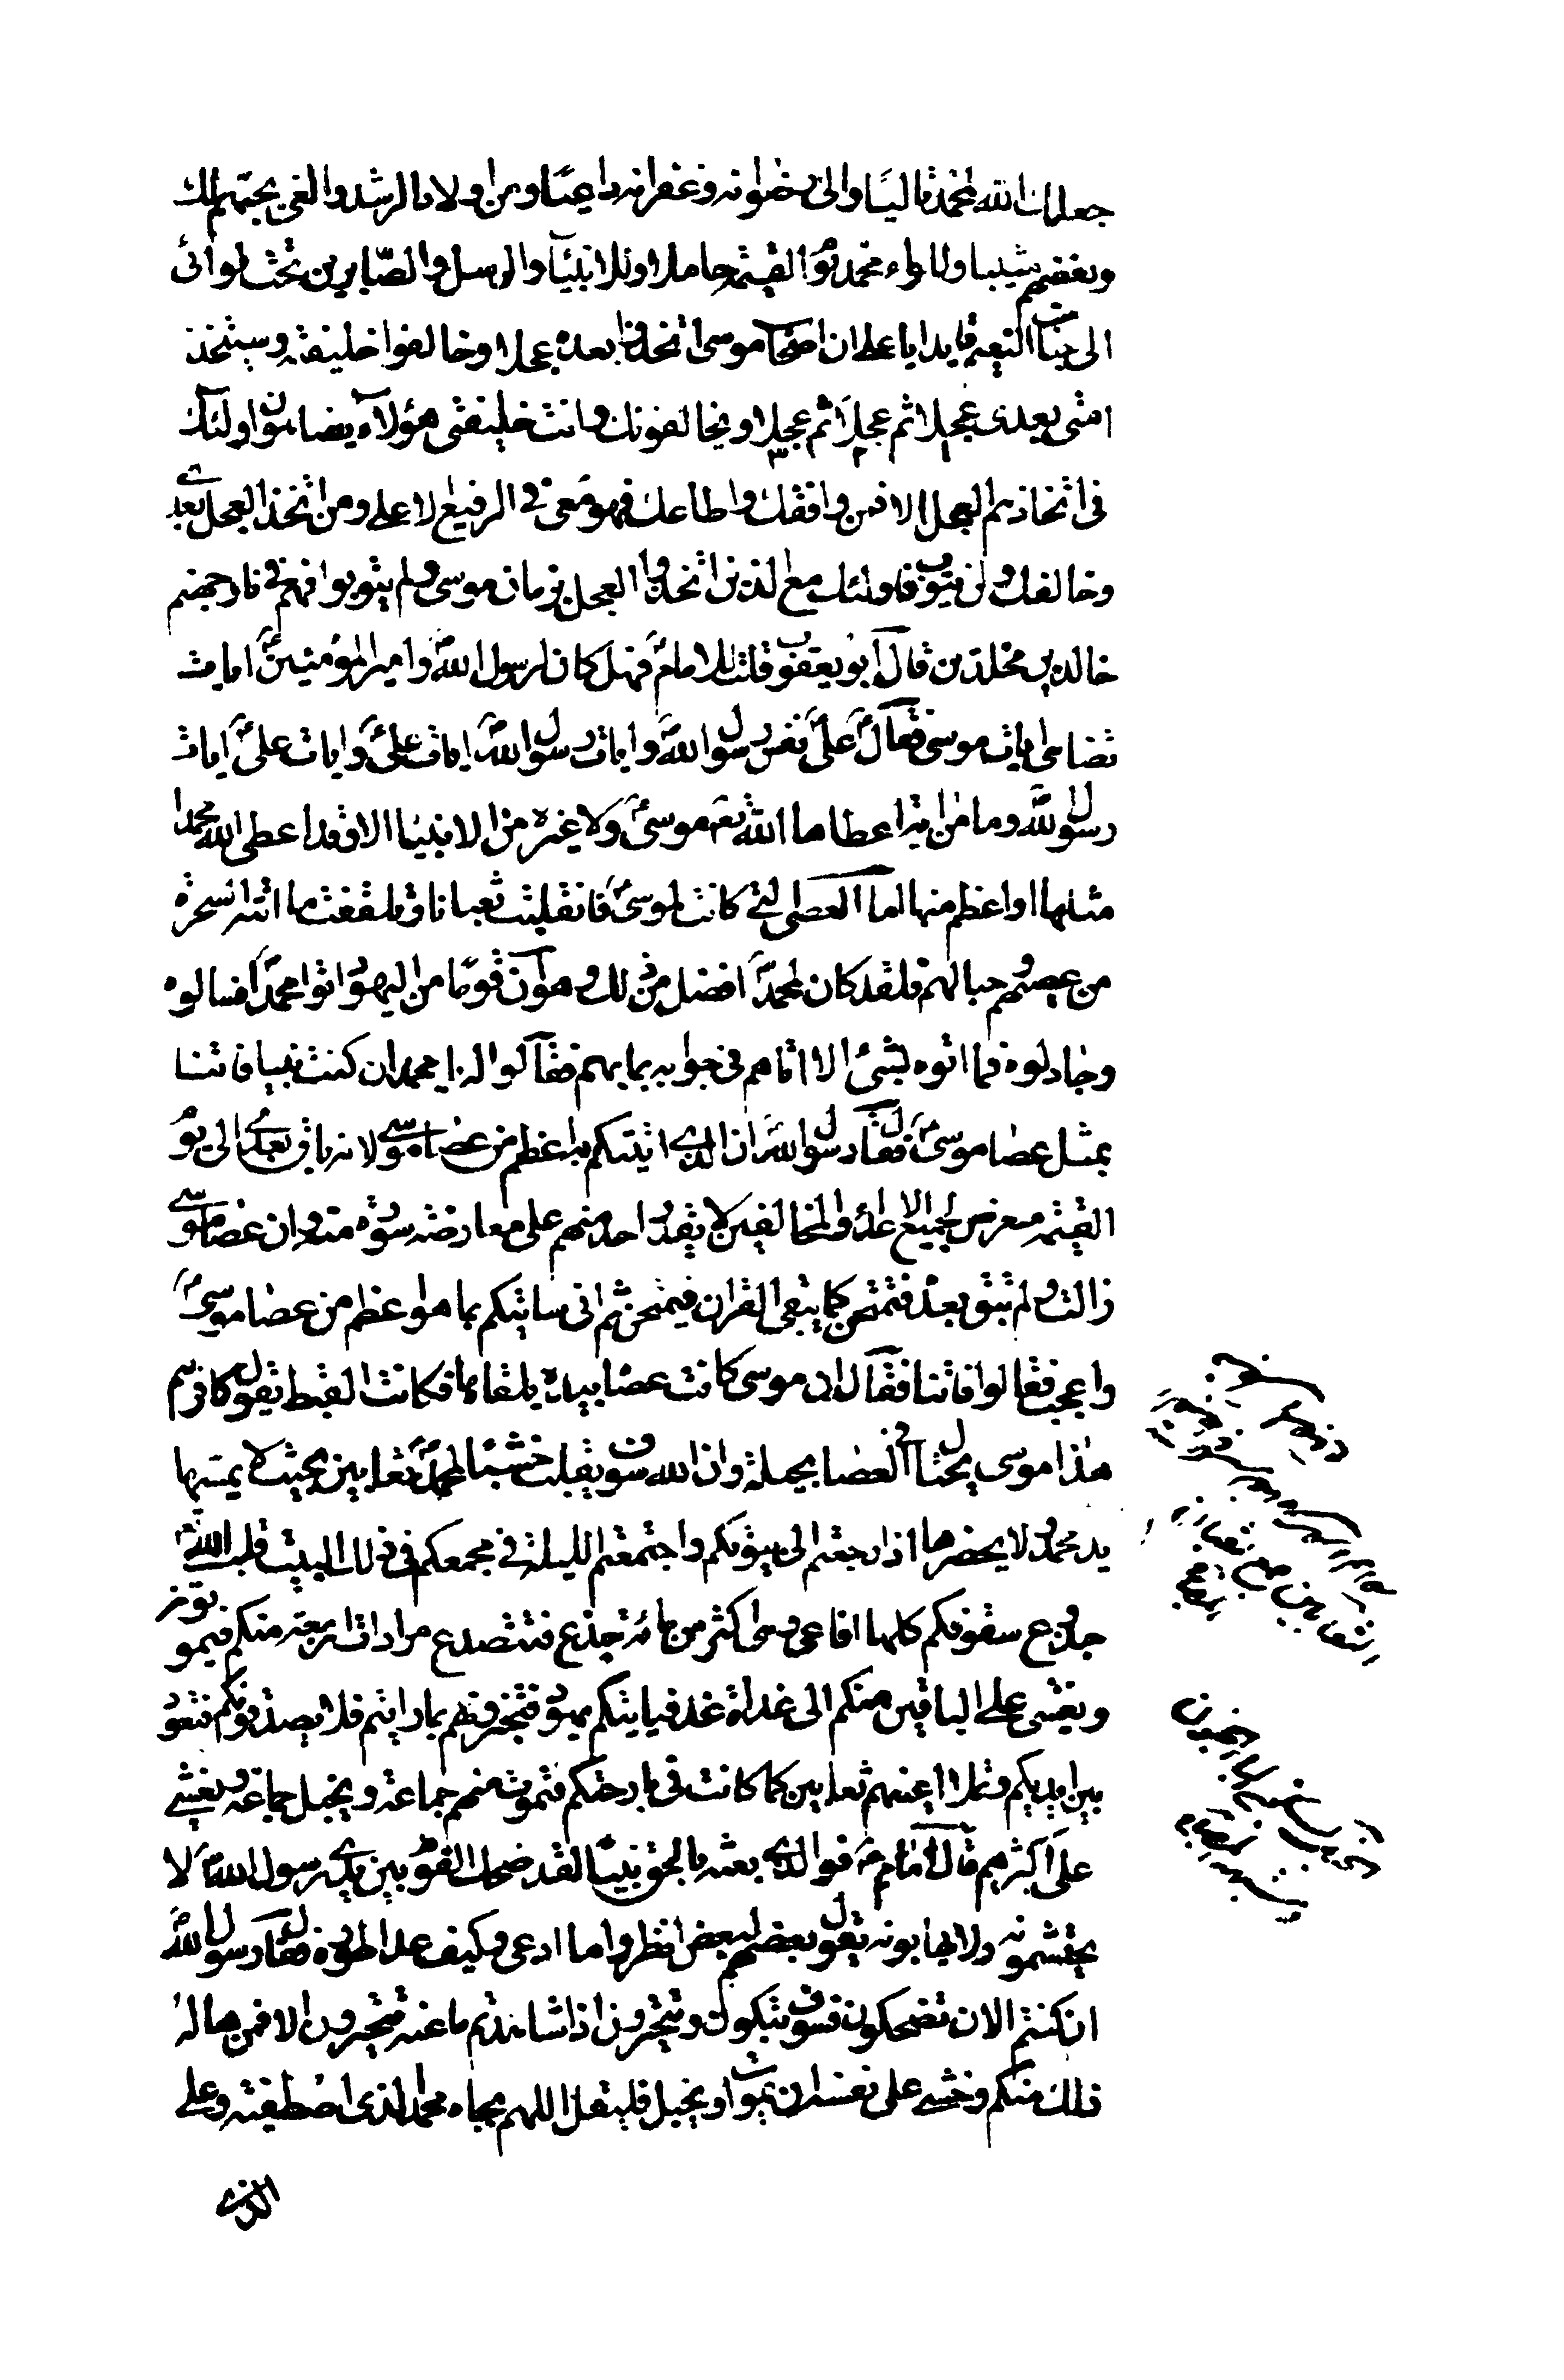 جعلك الله لمحمد تاليا والى رضوانه وغفرانه داعيا وعن اولاد الرشد والغى بحبهم لك
وبغضهم مميزا ولواء محمد يوم القيمة حاملا وللانبياء والرسل والصابرين تحت لوائى
الى جنات النعيم قايدا يا على ان اصحاب موسى اتخذوا بعده عجلا وخالفوا خليفته وسيتخذ
امتى بعدى عجلا ثم عجلا ثم عجلا ويخالفونك وانت خليفتى هؤلاء يضاهون اولئك
فى اتخاذهم العجل الا فمن وافقك واطاعك فهو معى فى الرفيع الاعلى ومن اتخذ العجل بعدى
وخالفك ولن يتوب فاولئك مع الذين اتخذوا العجل زمان موسى ولم يتوبوا فهم فى نار جهنم
خالدين مخلدين قال ابو يعقوب قلت للامام فهل كان لرسول الله وامير المؤمنين ايات
تضاهى ايات موسى فقال على نفس رسول الله وايات رسول الله ايات على وايات على ايات
رسول الله وما من اية اعطاها الله تعالى موسى ولا غيره من الانبياء الا وقد اعطى الله محمدا
مثلها او اعظم منها اما العصى التى كانت لموسى فانقلبت ثعبانا فتلقفت ما اتته السحرة
من عصيهم وحبالهم فلقد كان لمحمد افضل من ذلك وهو ان قوما من اليهود اتوا محمدا فسالوه
وجادلوه فما اتوه بشئ الا اتاهم فى جوابه بما بهتهم فقالوا له يا محمد ان كنت نبيا فاتنا
بمثل عصا موسى فقال رسول الله ان الذى اتيتكم به اعظم من عصا موسى لانه باق بعدى الى يوم
القيمة معرض لجميع الاعداء والمخالفين لا يقدر احد منهم على معارضة سورة منه وان عصا موسى
زالت ولم تبق بعده فتمتحن كما يبقى القران فيمتحن ثم انى ساتيكم بما هو اعظم من عصا موسى
واعجب فقالوا فاتنا فقال ان موسى كانت عصاه بيده يلقاها فكانت القبط تقول كافرهم
هذا موسى يحتال فى العصا بحيلة وان الله سوف يقلب خشبا لمحمد ثعابين بحيث لا يمسها
يد محمد ولا يحضرها اذا رجعتم الى بيوتكم واجتمعتم الليلة فى مجمعكم فى ذلك البيت قلب الله
جذوع سقوفكم كلها افاعى وهى اكثر من مائة جذع فتتصدع مرارات اربعة منكم فيموتون
ويغشى على الباقين منكم الى غداة غد فياتيكم يهود فتخبرونهم بما رايتم فلا يصدقونكم فتعود
بين ايديكم وتملا اعينهم ثعابين كما كانت فى بارحتكم فتموت منهم جماعة ويخبل جماعة ويغشى
على اكثرهم قال الامام فوالذى بعثه بالحق نبيا لقد ضحك القوم بين يدى رسول الله لا
يحتشمونه ولا يهابونه يقول بعضهم لبعض انظروا ما ادعى وكيف عدا طوره فقال رسول الله
ان كنتم الان تضحكون فسوف تبكون وتتحيرون اذا شاهدتم ما عنه تخبرون الا فمن هاله
ذلك منكم وخشى على نفسه ان يموت او يخبل فليقل اللهم بجاه محمد الذى اصطفيته وعلى
الذى